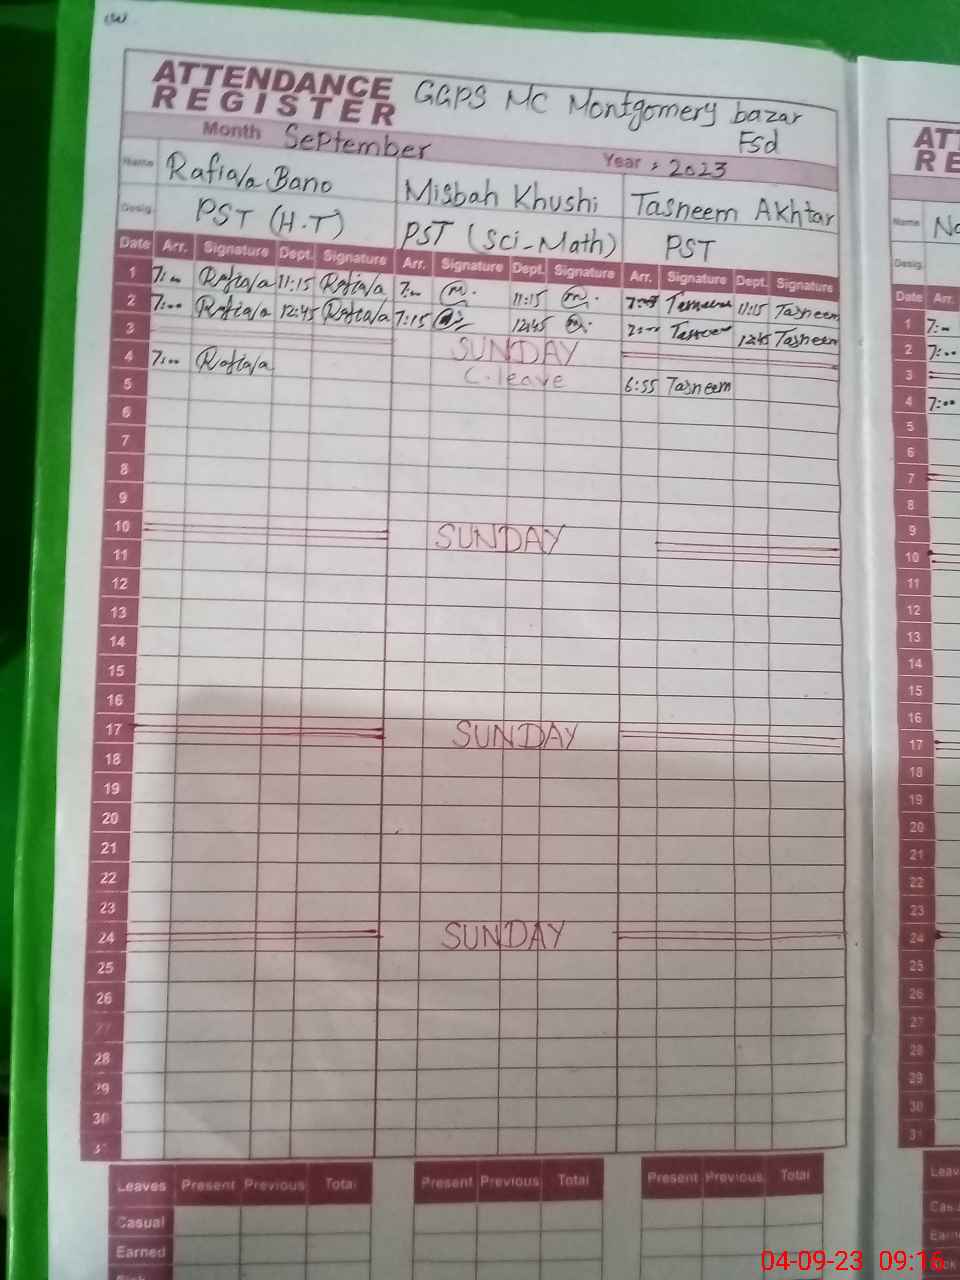 ATTENDANCE REGISTER GGPS MC Montgomery bazar Fsd
Month September Year : 2023
Name Rafia/a Bano Misbah Khushi Tasneem Akhtar
Desig. PST (H.T) PST (Sci-Math) PST
Date Arr. Signature Dept. Signature Arr. Signature Dept. Signature Arr. Signature Dept. Signature
1 7:00 Rafia/a 11:15 Rafia/a 7:00 m. 11:15 m. Tasneem 11:15 Tasneem
2 7:00 Rafia/a 12:45 Rafia/a 7:15 12:45 m. 7:00 Tasneem 12:45 Tasneem
3 SUNDAY
4 7:00 Rafia/a C.leave 6:55 Tasneem
5
6
7
8
9
10 SUNDAY
11
12
13
14
15
16
17 SUNDAY
18
19
20
21
22
23
24 SUNDAY
25
26
27
28
29
30
Leaves Present Previous Total Present Previous Total Present Previous Total
Casual
Earned
Name
Desig.
Date Arr.
1 7:00
2 7:00
3
4 7:00
5
6
7
8
9
10
11
12
13
14
15
16
17
18
19
20
21
22
23
24
25
26
27
28
29
30
04-09-23 09:16